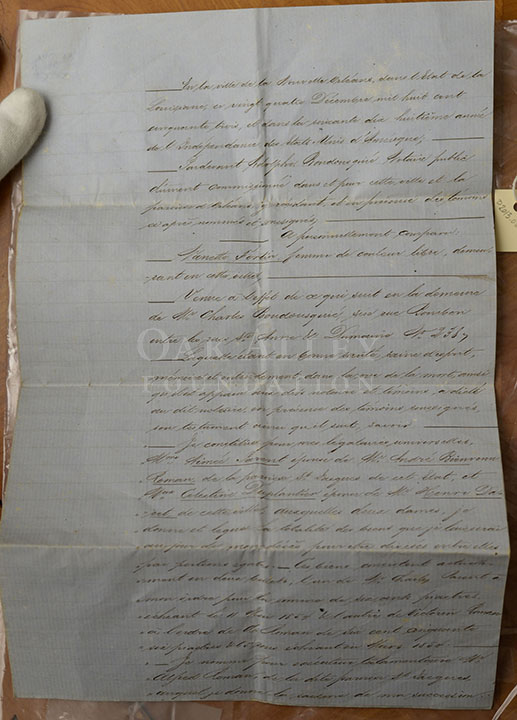 En la ville de la Nouvelle Orléans, dans l'Etat de la
Louisiane, ce vingt quatre Décembre mil huit cent
cinquante trois, et dans la soixante dix huitième année
de l'Independance des Etats Unis d'Amerique,
Pardevant Adolphe Boudousquié, Notaire public
dûment Commissionné dans et pour cette ville et la
paroisse d'Orléans, y résidant, et en présence des témoins
ci après nommés et soussignés,
A personnellement comparu
Nanette Fortin, femme de couleur libre, demeu-
rant en cette ville,
Venue à l'effet de ce qui suit en la demeure
de Mr. Charles Boudousquié, sise rue Bourbon
entre les rues Ste. Anne & Dumaine No. 238,
Laquelle étant en bonne santé, saine d'esprit,
mémoire et entendement, dans la vue de la mort, ainsi
qu'il est apparu aux dits notaire et témoins, a dicté
au dit notaire, en présence des témoins soussignés
son testament ainsi qu'il suit, savoir
Je constitue pour mes légataires universelles,
Mme. Aimée Parent épouse de Mr. André Bienvenu
Roman de la paroisse St. Jacques de cet Etat, et
Mme. Célestine épouse de Mr. Henry
de cette ville auxquelles deux dames, je
donne et legue la totalité des biens que je laisserai
au jour de mon décès pour être divisés entre elles
par portions égales. Les biens consistent actuelle-
ment en deux billets, l'un de Mr. Charles Parent à
mon ordre pour la somme de soixante piastres
échéant le 11 Mars 185 & l'autre de
à l'ordre de Roman de six cent cinquante
six piastres échéant en Mars 185
Je nomme pour exécuteur testamentaire Mr.
Alfred Roman de la dite paroisse St. Jacques
auquel je donne la saisine de ma succession
OAK ALLEY
FOUNDATION